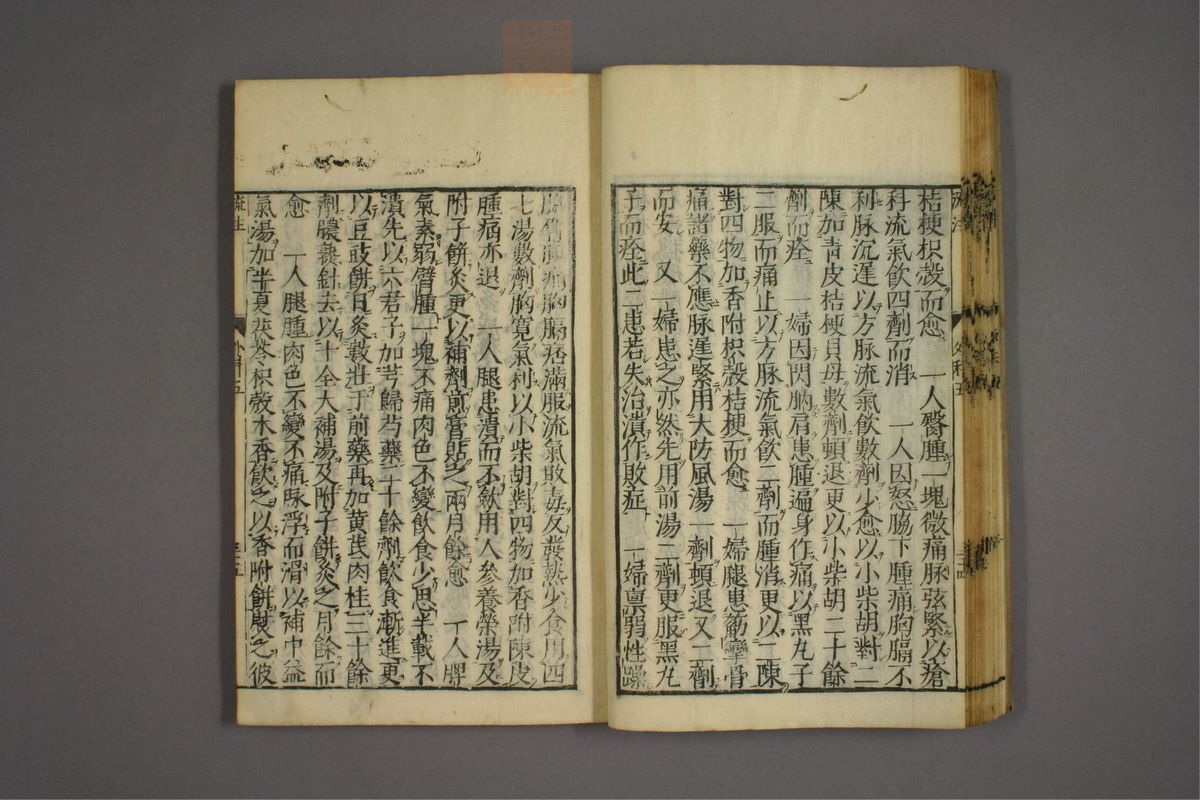 桔梗枳殼而愈　一人臀腫一塊微痛脉弦緊以瘡
科流氣飲四劑而消　一人因怒脇下腫痛胸膈不
利脉沉遲以方脉流氣飲數劑少愈以小柴胡對二
陳加青皮桔梗貝母數劑頓退更以小柴胡二十餘
劑而痊　一婦因閃肭肩患腫遍身作痛以黑丸子
二服而痛止以方脉流氣飲二劑而腫消更以二陳
對四物加香附枳殼桔梗而愈　一婦腿患筋攣骨
痛諸藥不應脉遲緊用大防風湯一劑頓退又二劑
而安　又一婦患之亦然先用前湯二劑更服黑丸
子而痊此二患若失治潰作敗症　一婦稟弱性躁
胸膈痞滿服流氣敗毒反發熱少食用四
七湯數劑胸寬氣利以小柴胡對四物加香附陳皮
腫痛亦退　一人腿患潰而不斂用人參養榮湯及
附子餅灸更以補劑煎膏貼之兩月餘愈　一人脾
氣素弱臂腫一塊不痛肉色不變飲食少思半載不
潰先以六君子加芎歸芍藥二十餘劑飲食漸進更
以豆豉餅日灸數壯于前藥再加黄芪肉桂三十餘
劑膿熟針去以十全大補湯及附子餅灸之月餘而
愈　一人腿腫肉色不變不痛脉浮而滑以補中益
氣湯加半夏茯苓枳殼木香飲之以香附餅熨之彼
外科五